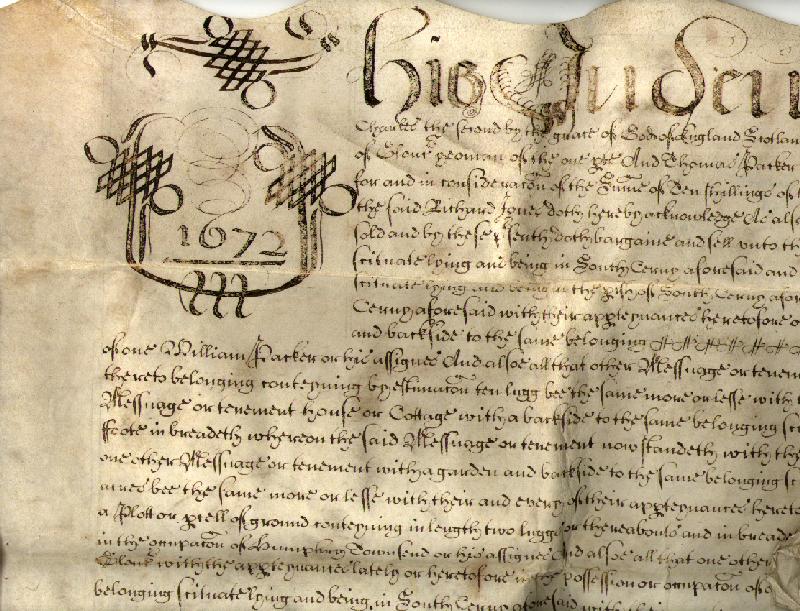 This Inden
1672
Charles the second by the grace of God of England Scotlan
of Glouc yeoman of the one pte And Thomas Packer
for and in consideracon of the Summe of Ten shillings of
the said Richard Jones doth hereby acknowledge As also
sold and by these psents doth bargaine and sell unto th
scituate lying and being in South Cerny aforesaid and
scituate lying and being in the pish of South Cerny afor
Cerny aforesaid with their apptenances heretofore o
and backside to the same belonging
of one William Packer or his assignes And alsoe all that other Messuage or tenem
thereto belonging conteyning by estimacon ten lugg bee the same more or lesse with t
Messuage or tenement house or Cottage with a backside to the same belonging sc
foote in breadeth whereon the said Messuage or tenement now standeth with th
one other Messuage or tenement with a garden and backside to the same belonging sc
acres bee the same more or lesse with their and every of their apptenances hereto
a Plott or pcell of ground conteyning in length two lugge or thereabouts and in breade
in the occupacon of Humphry Townsend or his assignes And alsoe all that one other
with the apptenances lately or heretofore in the possession or occupacon of
belonging scituate lying and being in South Cerny aforesaid with